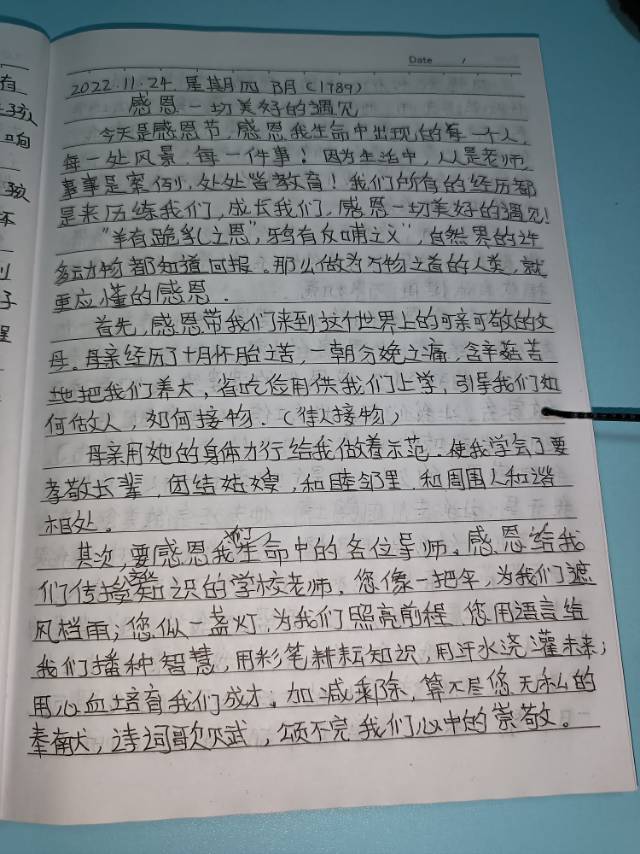 Date /
有
孩
响
孩
子
2022.11.24. 星期四 阴 (1789)
感恩一切美好的遇见
今天是感恩节，感恩我生命中出现的每一个人，
每一处风景，每一件事！因为生活中，人人是老师，
事事是案例，处处皆教育！我们所有的经历都
是来历练我们，成长我们，感恩一切美好的遇见！
"羊有跪乳之恩"，鸦有反哺之义"，自然界的许
多动物都知道回报。那么做为万物之首的人类，就
更应懂的感恩．
首先，感恩带我们来到这个世界上的可亲可敬的父
母。母亲经历了十月怀胎之苦，一朝分娩之痛，含辛茹苦
地把我们养大，省吃俭用供我们上学，引导我们如
何做人，如何接物．（待人接物）
母亲用她的身体力行给我做着示范．使我学会了要
孝敬长辈，团结姑嫂，和睦邻里，和周围人和谐
相处。
其次，要感恩我们生命中的各位导师。感恩给我
们传授知识的学校老师，您像一把伞，为我们遮
风档雨；您似一盏灯，为我们照亮前程，您用语言给
我们播种智慧，用彩笔耕耘知识，用汗水浇灌未来；
用心血培育我们成才。加减乘除，算不尽您无私的
奉献，诗词歌赋，颂不完我们心中的崇敬。